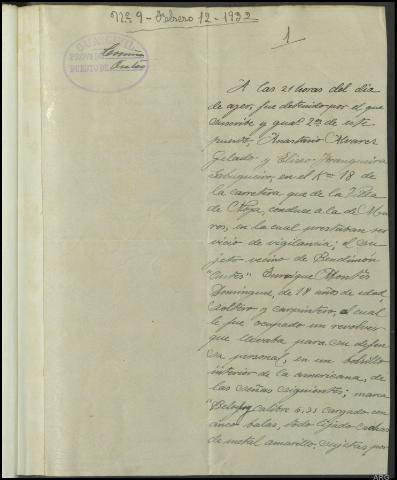 Nº 9 - Febrero 12 - 1932
1
GUARDIA CIVIL
PUESTO DE
A las 21 horas del dia
de ayer, fue detenido por el que
suscribe y guardia 2º de este
puesto, Anastasio Alvarez
Gelado y Eliseo Franqueira
en el Km 18 de
la carretera que de la Villa
de Noya, conduce a la de Mu-
ros, en la cual prestaban ser-
vicio de vigilancia; el su-
jeto vecino de
"Outes" Enrique Montes
Dominguez, de 18 años de edad,
soltero y carpintero, al cual
le fue ocupado un revolver
que llevaba para su defen-
sa personal, en un bolsillo
interior de la americana, de
las señas siguientes; marca
calibre 6,35 cargado con
cinco balas, todo
de metal amarillo, sujetas, por